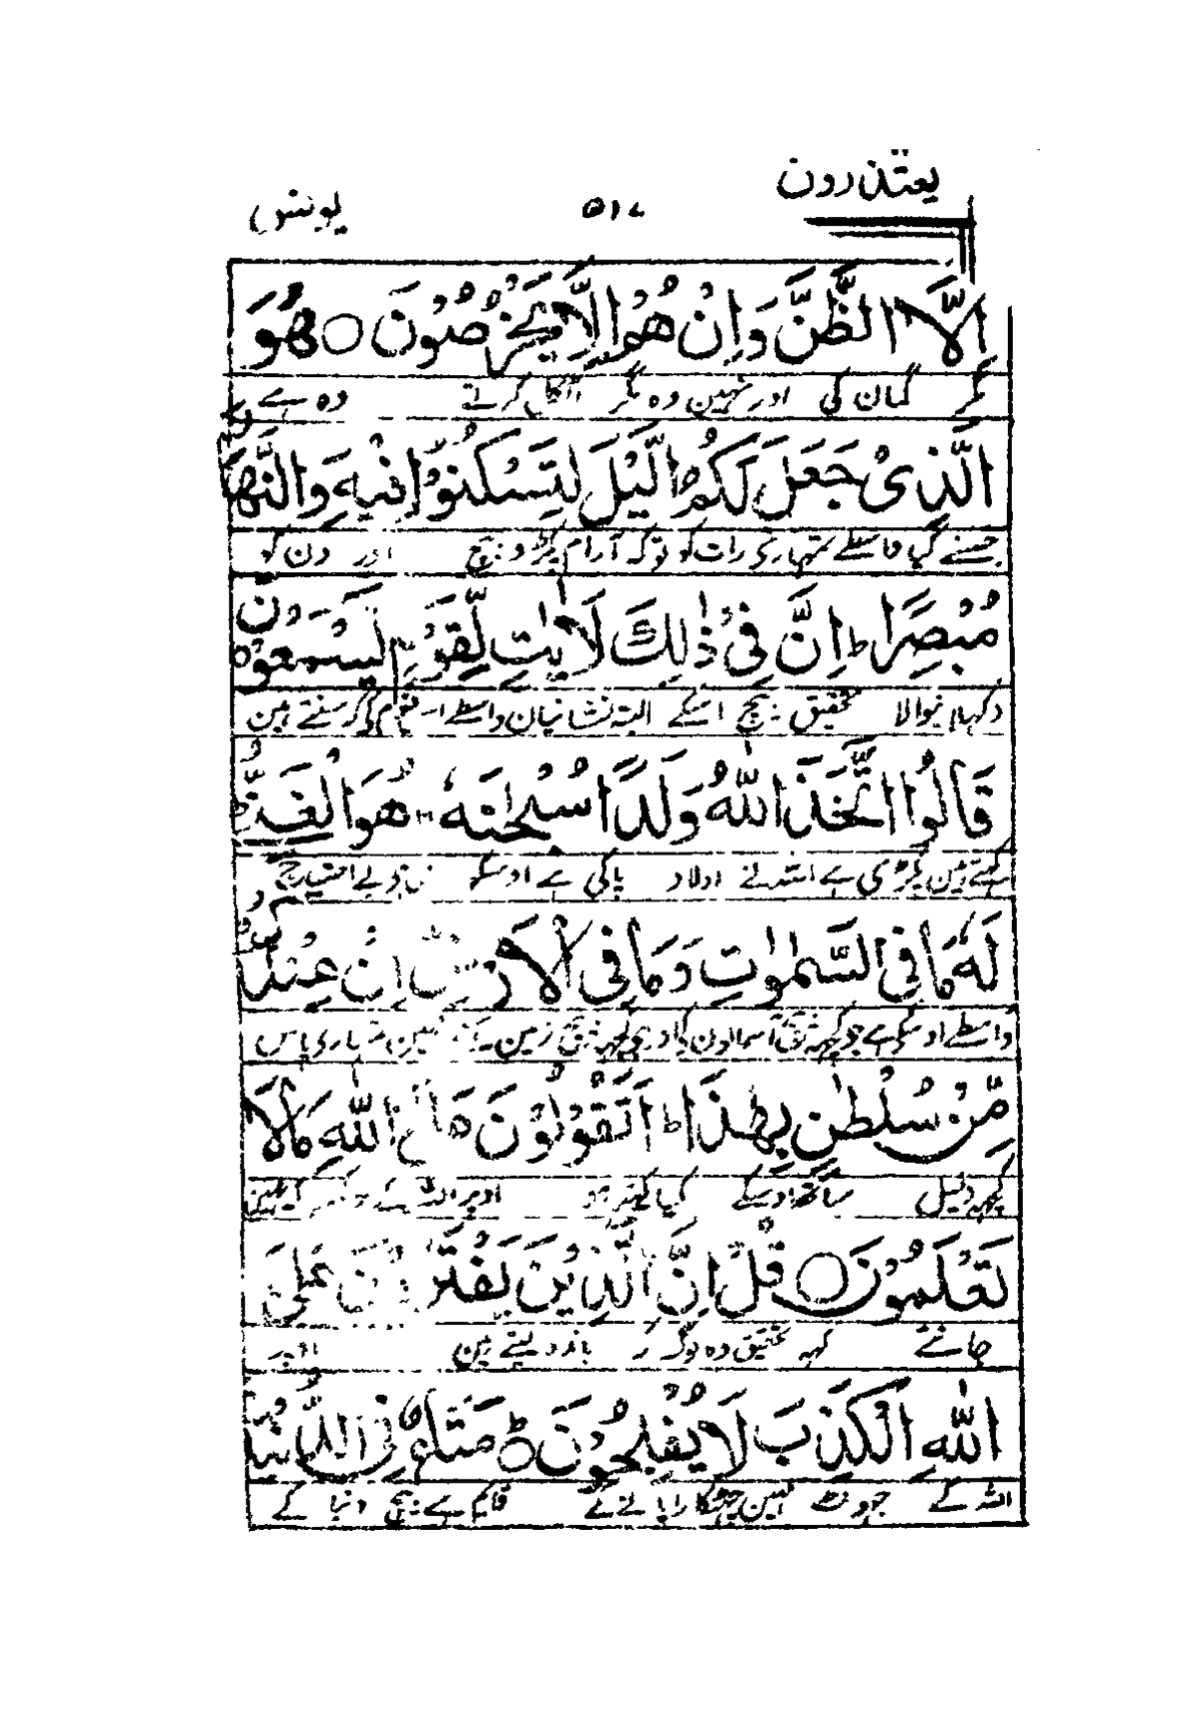 یعتذرون ۵۱۷ یونس
اِلَّا الظَّنَّ وَاِنْ هُمْ اِلَّا يَخْرُصُوْنَ ○ هُوَ
مگر گمان کی اور نہین وہ مگر اٹکل کرتے وہ ہے
الَّذِيْ جَعَلَ لَكُمُ الَّيْلَ لِتَسْكُنُوْا فِيْهِ وَالنَّهَارَ
جسنے کیا واسطے تمہاری رات کو توکہ آرام پکڑو بیچ اور دن کو
مُبْصِرًا ط اِنَّ فِيْ ذٰلِكَ لَاٰيٰتٍ لِّقَوْمٍ يَّسْمَعُوْنَ ○
دکہلانیوالا تحقیق بیچ اسکے البتہ نشانیان واسطے اس قوم کی کہ سنتے ہین
قَالُوا اتَّخَذَ اللّٰهُ وَلَدًا سُبْحٰنَهٗ ط هُوَ الْغَنِيُّ ط
کہتے ہین پکڑی ہے اللہ نے اولاد پاکی ہے اوسکو وہ بے احتیاج
لَهٗ مَا فِي السَّمٰوٰتِ وَمَا فِي الْاَرْضِ اِنْ عِنْدَكُمْ
واسطے اوسکے ہے جو کچہہ بیچ آسمانون کے اور جو کچہہ بیچ زمین کے نہین تمہاری پاس
مِّنْ سُلْطٰنٍ بِهٰذَا ط اَتَقُوْلُوْنَ عَلَى اللّٰهِ مَا لَا
کچہہ دلیل ساتھ اوسکے کیا کہتے ہو اوپر اللہ کے جو کچہہ کہ نہین
تَعْلَمُوْنَ ○ قُلْ اِنَّ الَّذِيْنَ يَفْتَرُوْنَ عَلَى
جانتے کہہ تحقیق وہ لوگ کہ باندہ لیتے ہین اوپر
اللّٰهِ الْكَذِبَ لَا يُفْلِحُوْنَ ط مَتَاعٌ فِي الدُّنْيَا
اللہ کے جہوٹ نہین چہٹکارا پانے کے قایم ہے بیچ دنیا کے